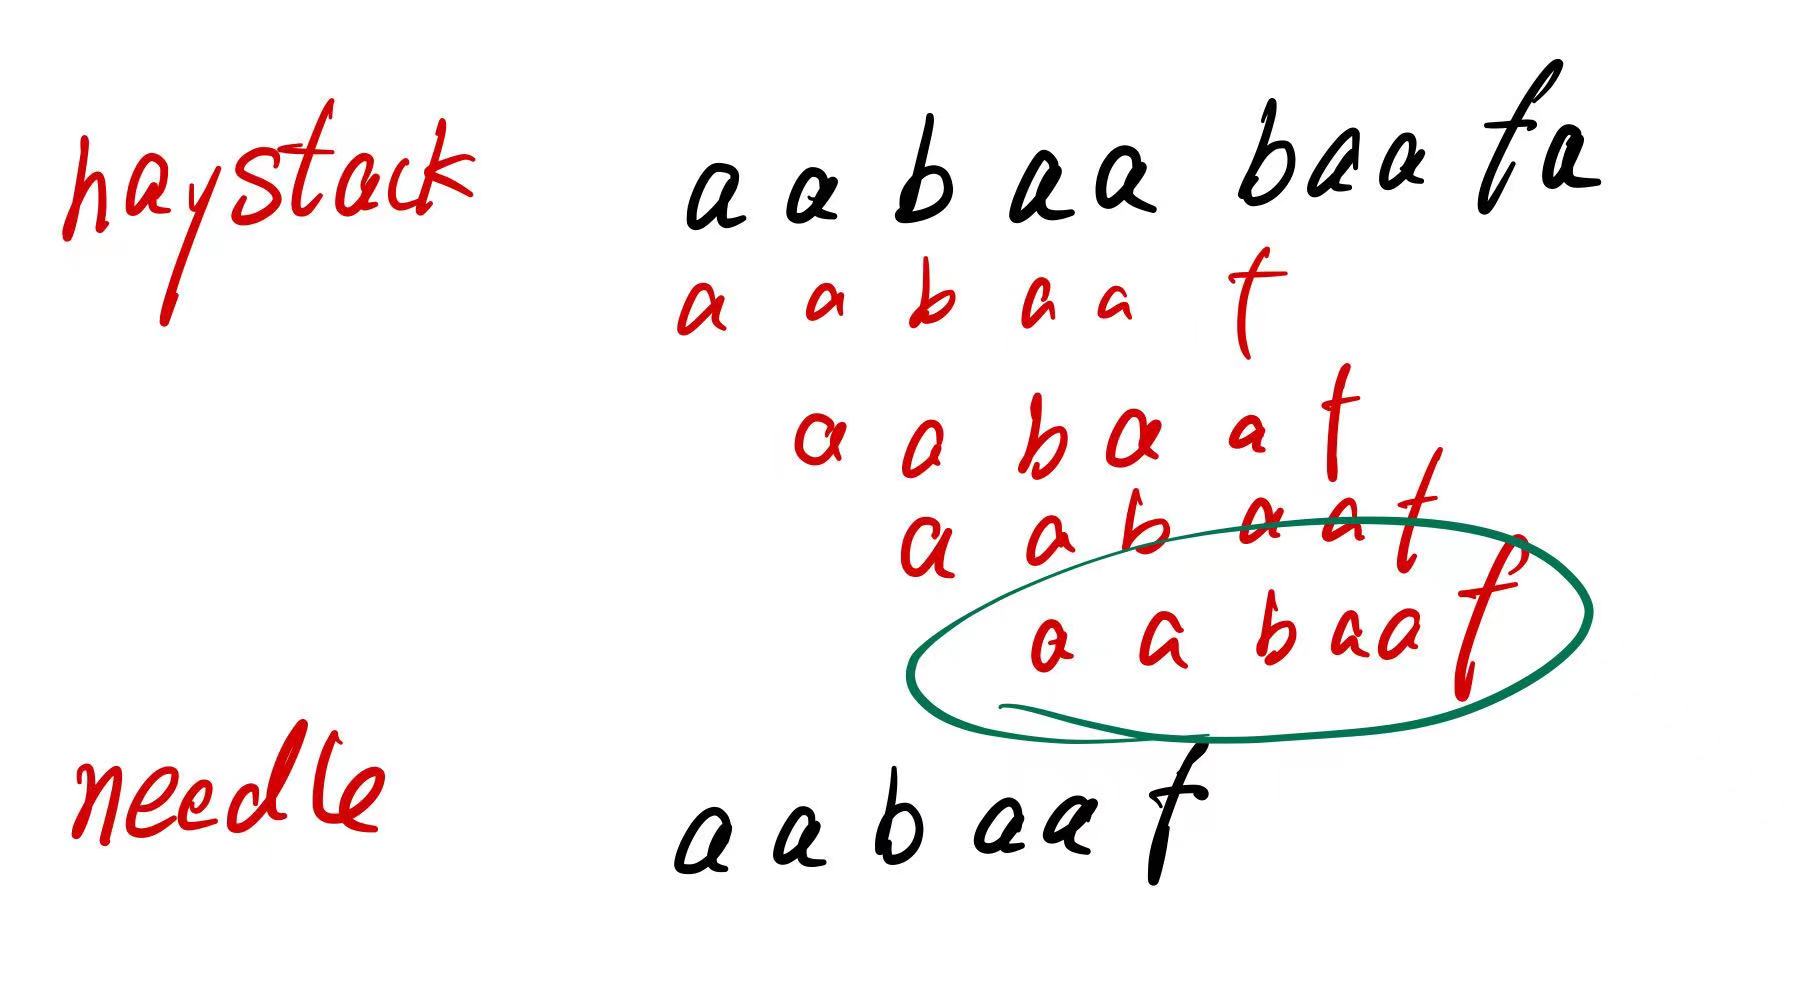 haystack a a b a a b a a f a
a a b a a f
a a b a a f
a a b a a f
a a b a a f
needle a a b a a f